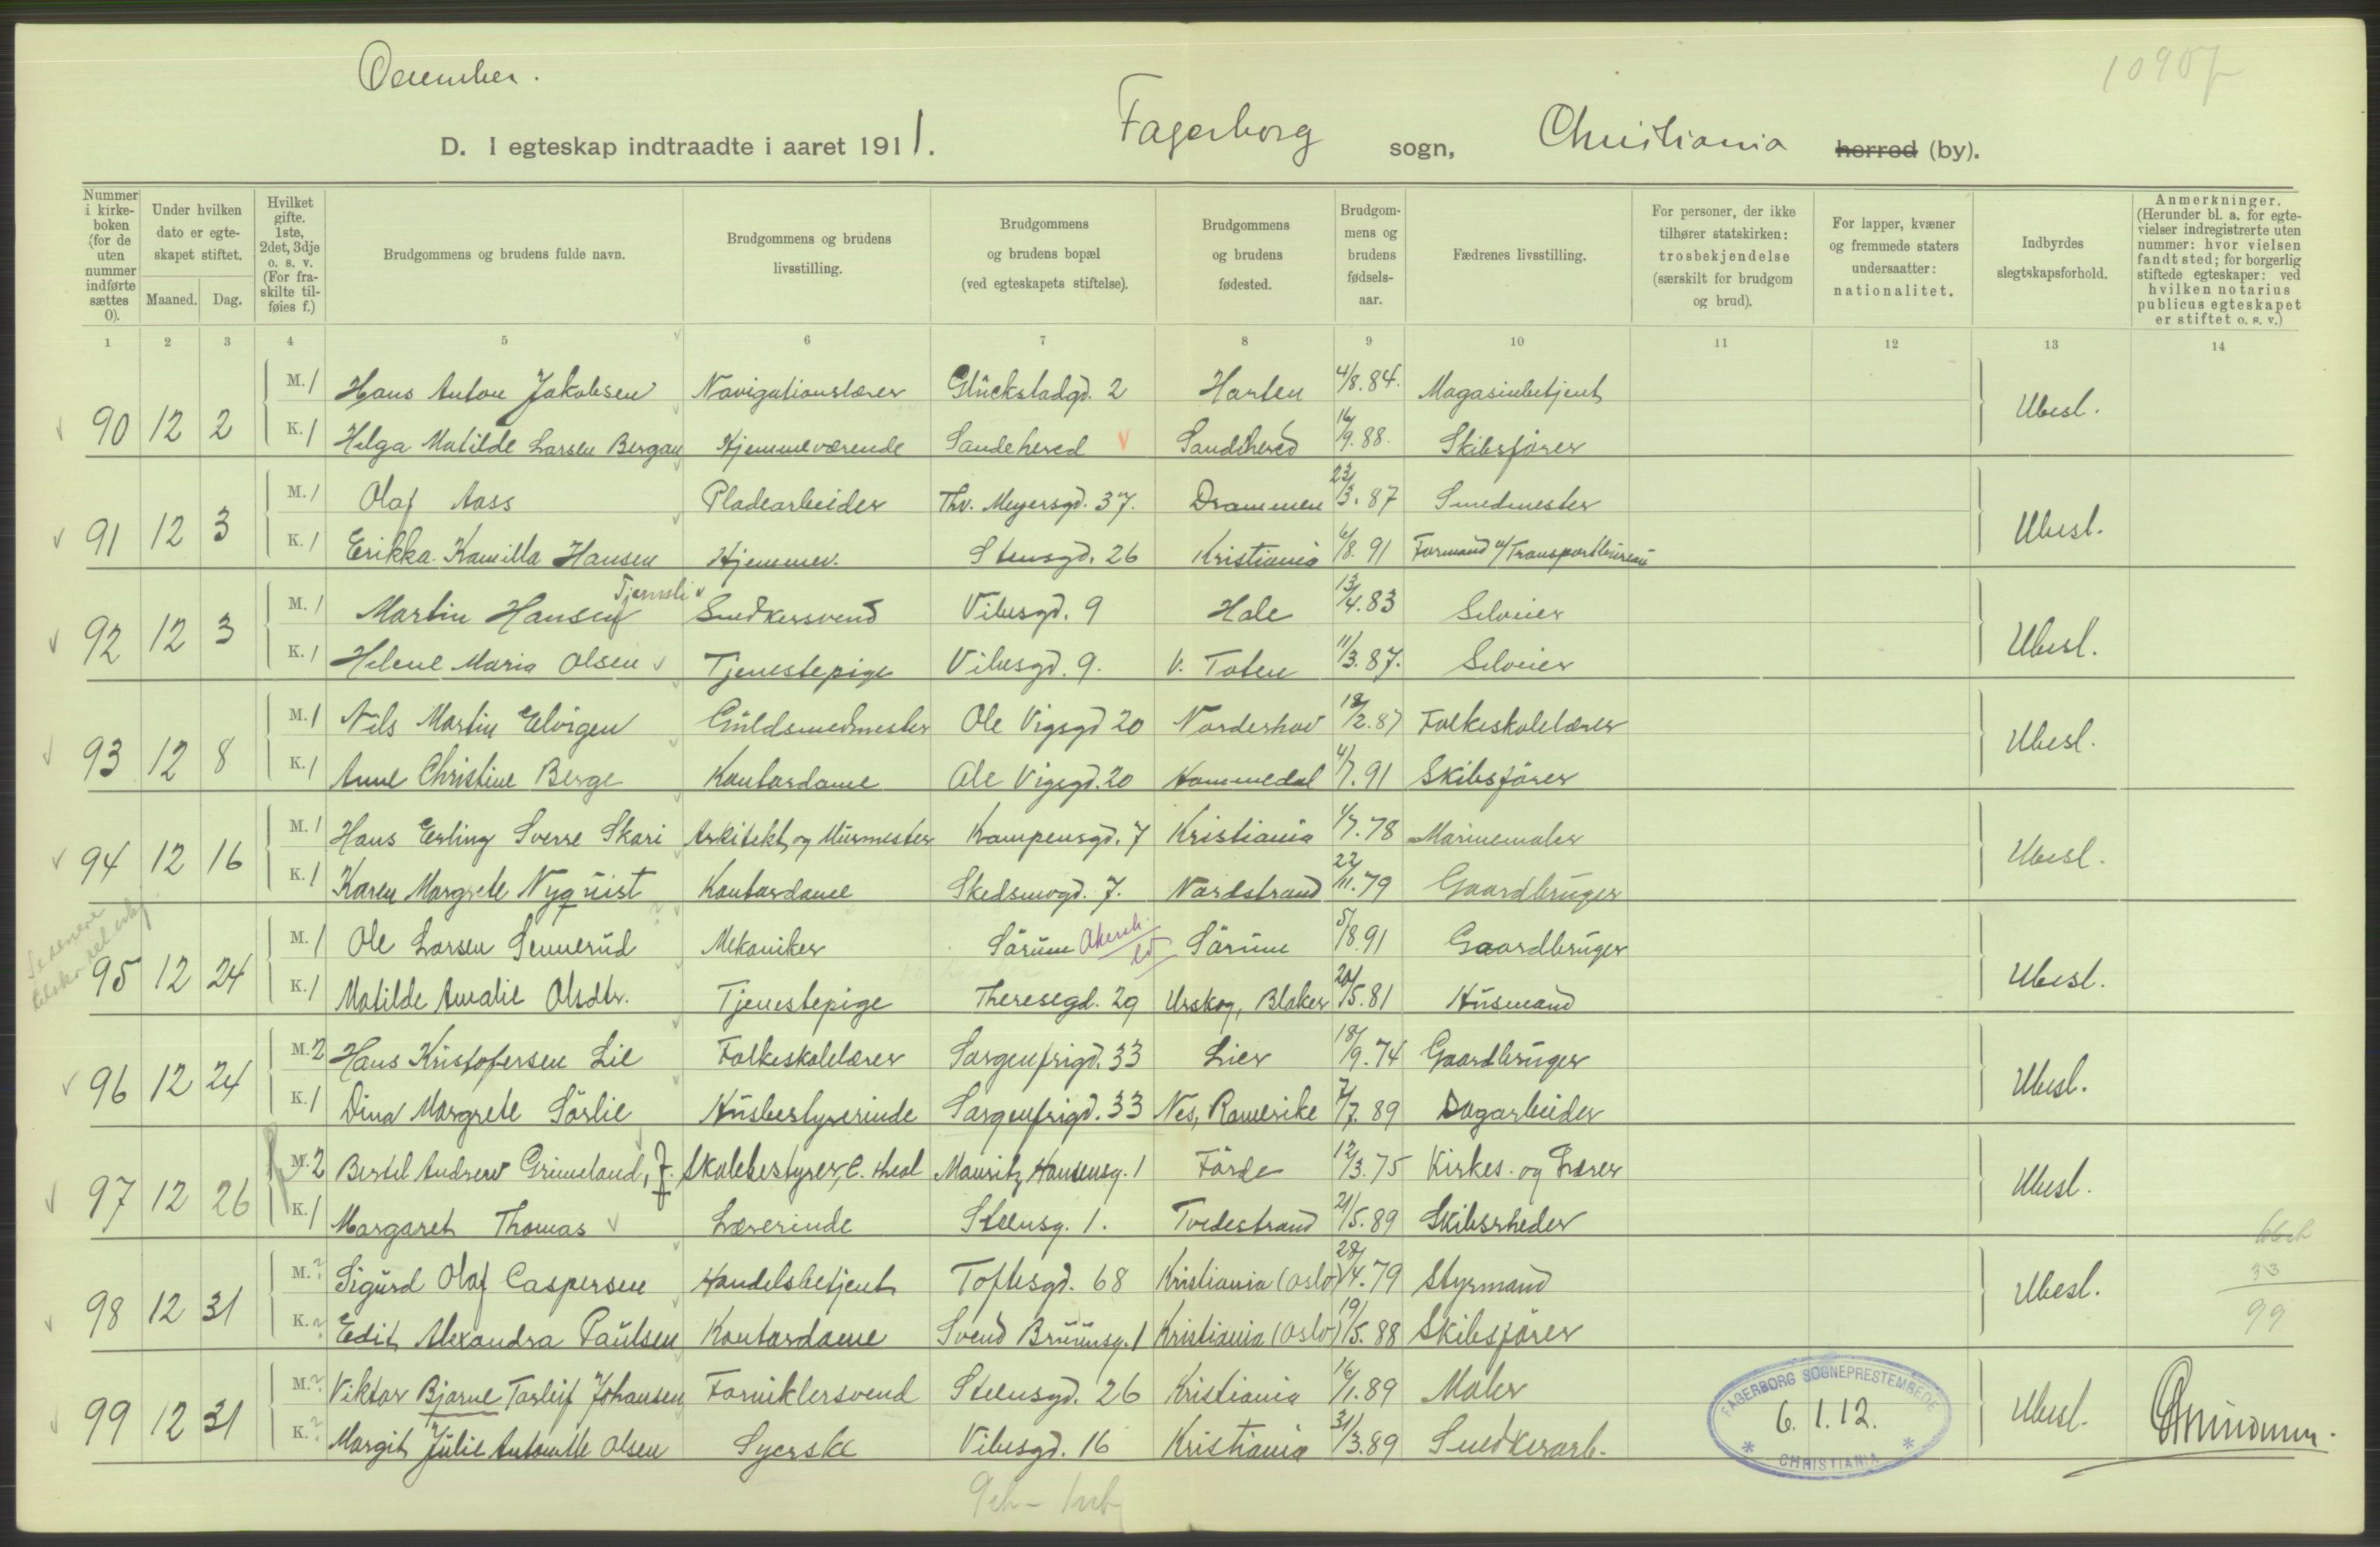 December.
D. I egteskap indtraadte i aaret 1911. Fagerborg sogn, Christiania herred (by).
Nummer i kirke-boken (for de uten nummer indførte sættes 0).
Under hvilken dato er egte-skapet stiftet.
Maaned. Dag.
Hvilket gifte. 1ste, 2det, 3dje o. s. v. (For fra-skilte til-føies f.)
Brudgommens og brudens fulde navn.
Brudgommens og brudens livsstilling.
Brudgommens og brudens bopæl (ved egteskapets stiftelse).
Brudgommens og brudens fødested.
Brudgom-mens og brudens fødsels-aar.
Fædrenes livsstilling.
For personer, der ikke tilhører statskirken: trosbekjendelse (særskilt for brudgom og brud).
For lapper, kvæner og fremmede staters undersaatter: nationalitet.
Indbyrdes slegtskapsforhold.
Anmerkninger. (Herunder bl. a. for egte-vielser indregistrerte uten nummer: hvor vielsen fandt sted; for borgerlig stiftede egteskaper: ved hvilken notarius publicus egteskapet er stiftet o. s. v.)
1 2 3 4 5 6 7 8 9 10 11 12 13 14
M. 1 Hans Anton Jakobsen Navigationslærer Glückstadgd. 2 Horten 4/8. 84. Magasinbetjent
90 12 2 Ubesl.
K. 1 Helga Matilde Larsen Bergan Hjemmeværende Sandehered Sandehered 16/9. 88. Skibsfører
M. 1 Olaf Aass Pladearbeider Thv. Meyersgd. 37. Drammen 23/3. 87 Smedmester
91 12 3 Ubesl.
K. 1 Erikka Kamilla Hansen Hjemmev. Stensgd. 26 Kristiania 6/8. 91 Formand v/ Transportbureau
M. 1 Martin Hansen Tjernsli Snedkersvend Vibesgd. 9 Hole 13/4. 83 Selveier
92 12 3 Ubesl.
K. 1 Helene Maria Olsen Tjenestepige Vibesgd. 9. V. Toten 11/3. 87. Selveier
M. 1 Nils Martin Elvigen Guldsmedmester Ole Vigsgd 20 Norderhov 18/2. 87 Folkeskolelærer
93 12 8 Ubesl.
K. 1 Anne Christine Berge Kontordame Ole Vigsgd. 20 Hommedal 4/7. 91 Skibsfører
M. 1 Hans Erling Sverre Skari Arkitekt og Murmester Kampensgd. 7 Kristiania 1/7. 78 Marinemaler
94 12 16 Ubesl.
K. 1 Karen Margrete Nyquist Kontordame Skedsmogd. 7. Nordstrand 22/11. 79 Gaardbruger
M. 1 Ole Larsen Sennerud Mekaniker Sørum Akersh. Sørum 5/8. 91 Gaardbruger
95 12 24 Ubesl.
K. 1 Matilde Amalie Olsdtr. Tjenestepige Theresegd. 29 Urskog, Blaker 20/5. 81 Husmand
M. 2 Hans Kristofersen Lie Folkeskolelærer Sorgenfrigd. 33 Lier 18/9. 74 Gaardbruger
96 12 24 Ubesl.
K. 1 Dina Margrete Sørlie Husbestyrerinde Sorgenfrigd. 33 Nes, Romerike 7/7. 89 Dagarbeider
M. 2 Bertel Andreas Grimeland, f. Skolebestyrer, C. theol Mauritz Hansensg. 1 Førde 12/3. 75 Kirkes. og Lærer
97 12 26 Ubesl.
K. 1 Margaret Thomas Lærerinde Steensg. 1. Tvedestrand 21/5. 89 Skibsrheder
M. ? Sigurd Olaf Caspersen Handelsbetjent Toftesgd. 68 Kristiania (Oslo) 28/4. 79 Styrmand
98 12 31 Ubesl.
K. ? Edit Alexandra Paulsen Kontordame Svend Bruunsg. 1 Kristiania (Oslo) 19/5. 88 Skibsfører
33
99
M. ? Viktor Bjarne Torleif Johansen Forniklersvend Steensgd. 26 Kristiania 16/1. 89 Maler
99 12 31 Ubesl.
K. ? Margit Julie Antonette Olsen Syerske Vibesgd. 16 Kristiania 31/3. 89 Snedkerarb.
FAGERBORG SOGNEPRESTEMBEDE
6. 1. 12.
* CHRISTIANIA *